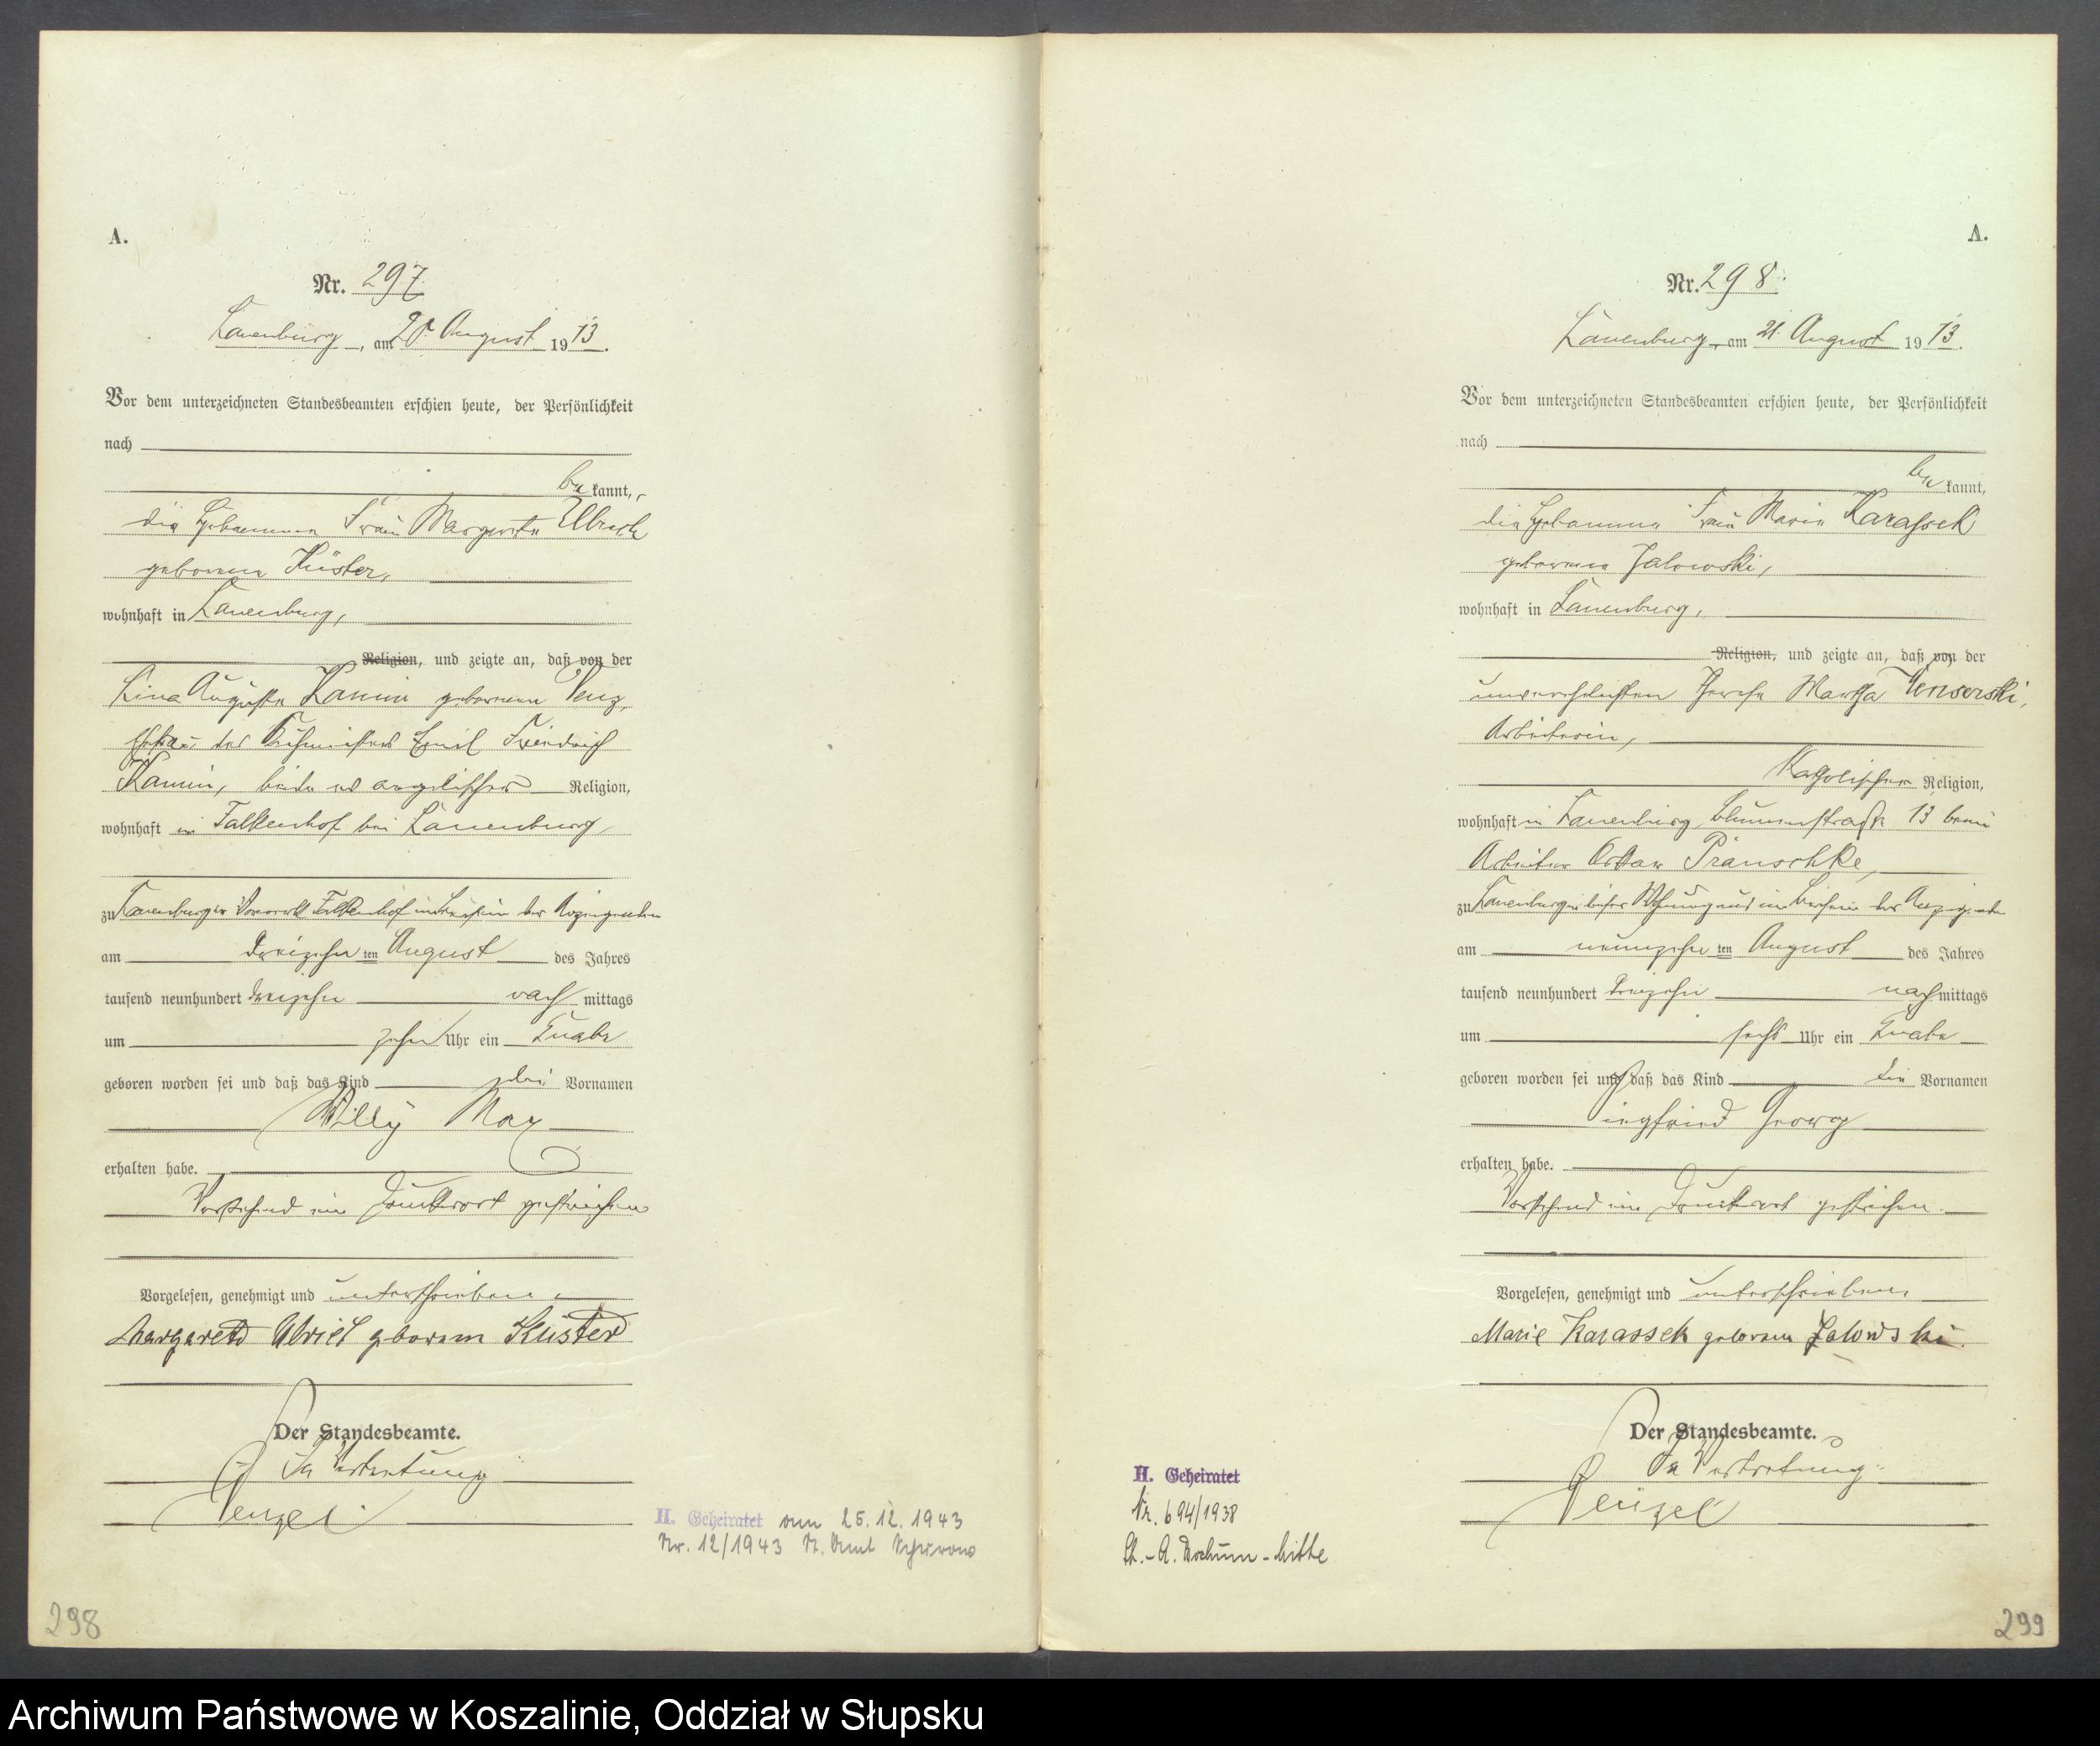 A.
Nr. 297
Lauenburg, am 20. August 1913.
Vor dem unterzeichneten Standesbeamten erschien heute, der Persönlichkeit
nach
be kannt,
die Hebamme Frau Margarete
geborene Küster,
wohnhaft in Lauenburg,
Religion, und zeigte an, daß von der
Lina Auguste Kamin geborenen
Ehefrau des Emil Friedrich
Kamin, beide evangelischer Religion,
wohnhaft in Falkenhof bei Lauenburg
zu Lauenburg in Vorwerk Falkenhof in Beisein der Anzeigenden
am dreizehnten August des Jahres
tausend neunhundert dreizehn nach mittags
um zehn Uhr ein Knabe
geboren worden sei und daß das Kind die Vornamen
Willy Max
erhalten habe.
Vorstehend ein Druckwort gestrichen
Vorgelesen, genehmigt und unterschrieben
geborene Küster
Der Standesbeamte.
In Vertretung
298
II. Geheiratet am 25.12.1943
Nr. 12/1943 St. Amt
A.
Nr. 298.
Lauenburg, am 21. August 1913.
Vor dem unterzeichneten Standesbeamten erschien heute, der Persönlichkeit
nach
be kannt,
die Hebamme Frau Marie Karassek
geborene Jalowski,
wohnhaft in Lauenburg,
Religion, und zeigte an, daß von der
unverehelichten Therese Martha
Arbeiterin,
katholischer Religion,
wohnhaft in Lauenburg, Blumenstraße 13 beim
Arbeiter Oskar Präuschke,
zu Lauenburg in dieser Wohnung und im Beisein der Anzeigenden
am neunzehnten August des Jahres
tausend neunhundert dreizehn nachmittags
um sechs Uhr ein Knabe
geboren worden sei und daß das Kind die Vornamen
Siegfried Georg
erhalten habe.
Vorstehend ein Druckwort gestrichen.
Vorgelesen, genehmigt und unterschrieben.
Marie Karassek geborene Jalowski.
Der Standesbeamte.
In Vertretung
II. Geheiratet
Nr. 694/1938
St.-A. Bochum-Mitte
299
Archiwum Państwowe w Koszalinie, Oddział w Słupsku